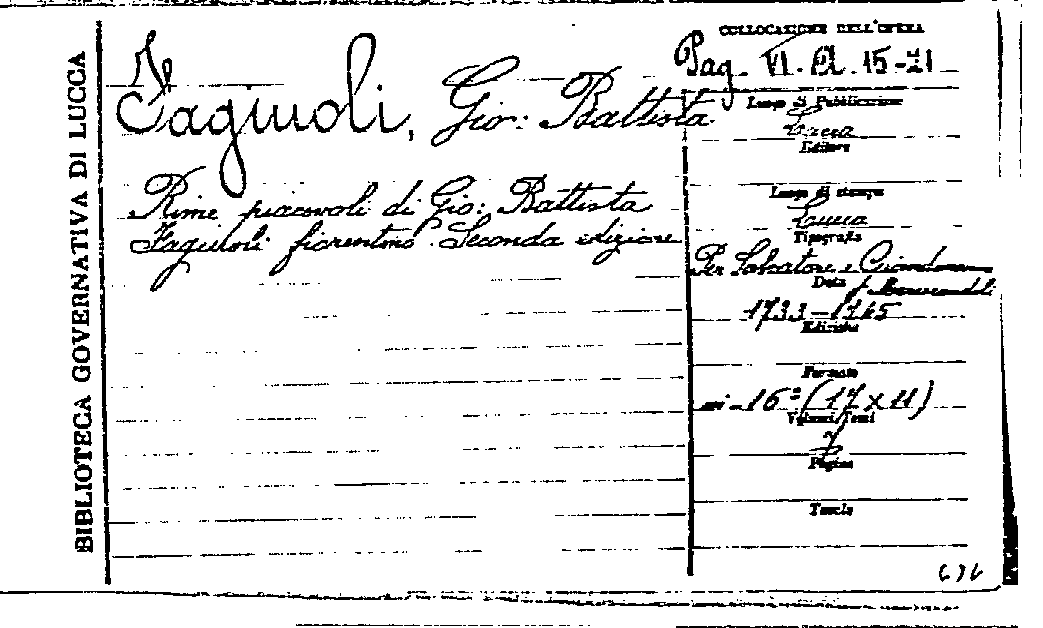 BIBLIOTECA GOVERNATIVA DI LUCCA
Fagiuoli, Gio: Battista
Rime piacevoli di Gio: Battista
Fagiuoli fiorentino. Seconda edizione
COLLOCAZIONE DELL'OPERA
Pag. VI. 15-21
Luogo di Pubblicazione
Lucca
Editore
Luogo di stampa
Lucca
Tipografia
Per Salvatore e Giandom.
Data
1733-1745
Edizione
Formato
in-16° (17 x 11)
Volumi/Tomi
7
Pagine
Tavole